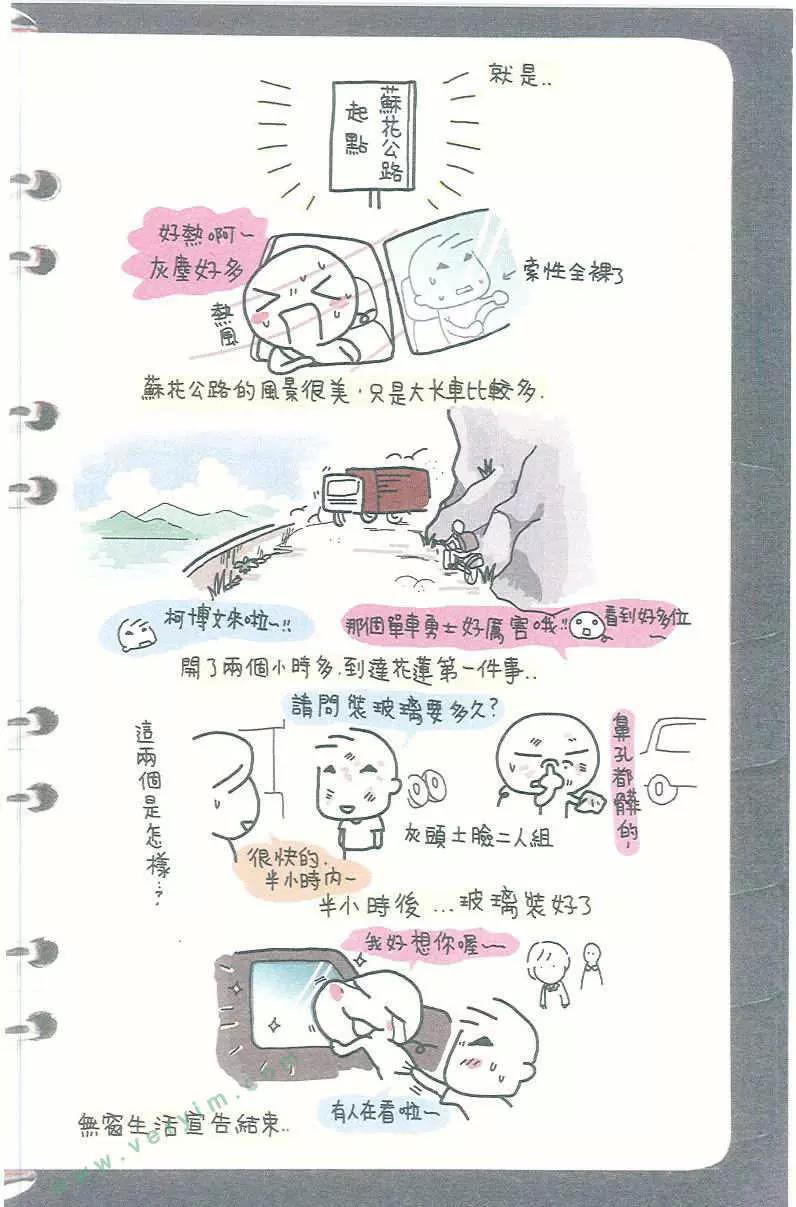 就是..
蘇花公路
起點
好熱啊~
灰塵好多
熱風
索性全裸了
蘇花公路的風景很美，只是大卡車比較多.
柯博文來啦~!!
那個單車勇士好厲害哦!!
看到好多位~
開了兩個小時多.到達花蓮第一件事..
請問裝玻璃要多久?
這兩個是怎樣…?
鼻孔都髒的，
灰頭土臉二人組
很快的.
半小時內~
半小時後 ...玻璃裝好了
我好想你喔~~
有人在看啦~
無窗生活宣告結束..
www.veryim.com